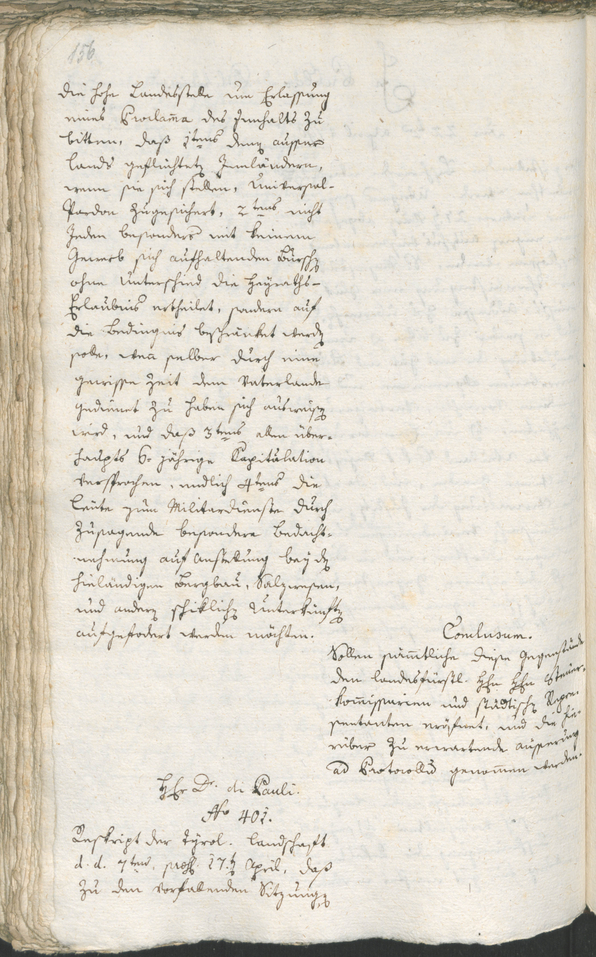 156
die hohe Landesstelle um Erlassung
eines Proclama des Innhalts zu
bitten, daß 1tens denen ausser
Lands geflüchteten Innländern,
wenn sie sich stellen, Universal-
Pardon zugesichert, 2tens nicht
jedem besonders mit keinem
Gewerb sich aufhaltenden Bursch
ohne Unterschied die Heyraths-
Erlaubnis ertheilet, sondern auf
die Bedingnis beschränket werden
solle, wenn selber durch eine
gewisse Zeit dem Vaterlande
gedienet zu haben sich ausweisen
wird, und daß 3tens allen über-
haupts 6 jährige Capitulation
versprochen, endlich 4tens die
Leute zum Militerdienste durch
zusagende besondere Bedacht-
nehmung auf Anstellung bey den
hieländigen Bergbau, Salzwesen,
und andern schiklichen Unterkünften
aufgefodert werden möchten.
Conclusum.
Sollen sämmtliche diese Gegenstände
den landesfürstl. HHn HHn Steuer-
kommissarien und städtischen Reprae-
sentanten eröfnet, und die hie-
rüber zu erwartende äusserung
ad Protocollum genommen werden.
Hr Dr. di Pauli.
No 401.
Reskript der Tyrol. Landschaft
d. d. 7ten, praes. 17ten April, daß
zu den vorfallenden Sitzungen